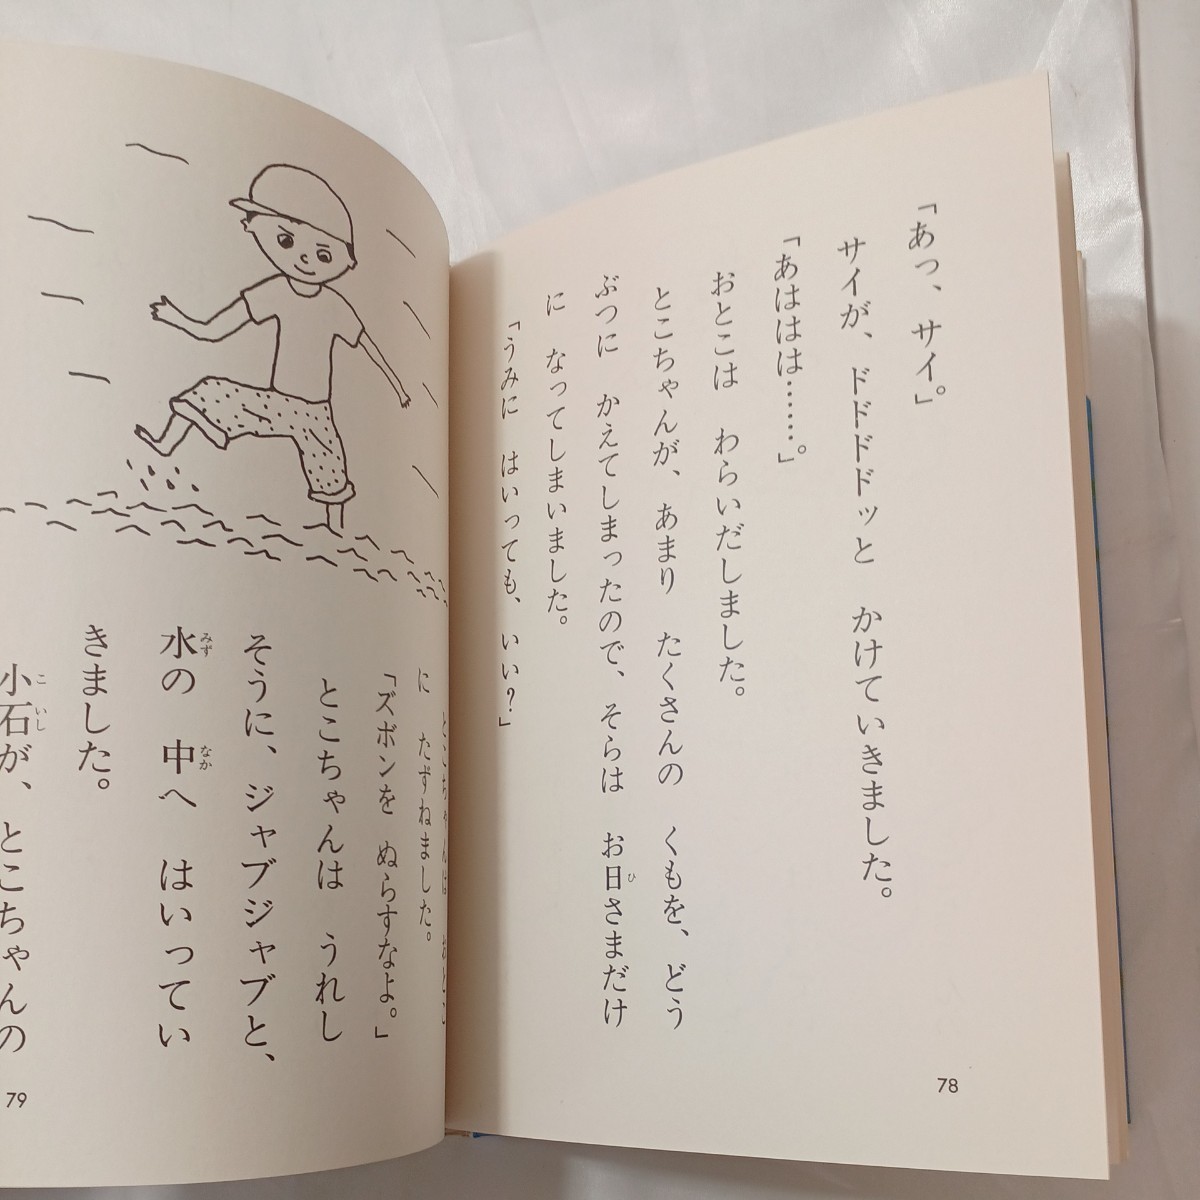 「あっ、サイ。」
サイが、ドドドドッと　かけていきました。
「あははは……。」
おとこは　わらいだしました。
とこちゃんが、あまり　たくさんの　くもを、どう
ぶつに　かえてしまったので、そらは　お日さまだけ
に　なってしまいました。
「うみに　はいっても、いい？」
78
とこちゃんは　おとこ
に　たずねました。
「ズボンを　ぬらすなよ。」
とこちゃんは　うれし
そうに、ジャブジャブと、
水の　中へ　はいってい
きました。
小石が、とこちゃんの
79